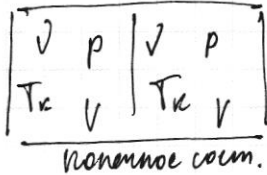 ν p | ν p
Tк V | Tк V
конечное сост.